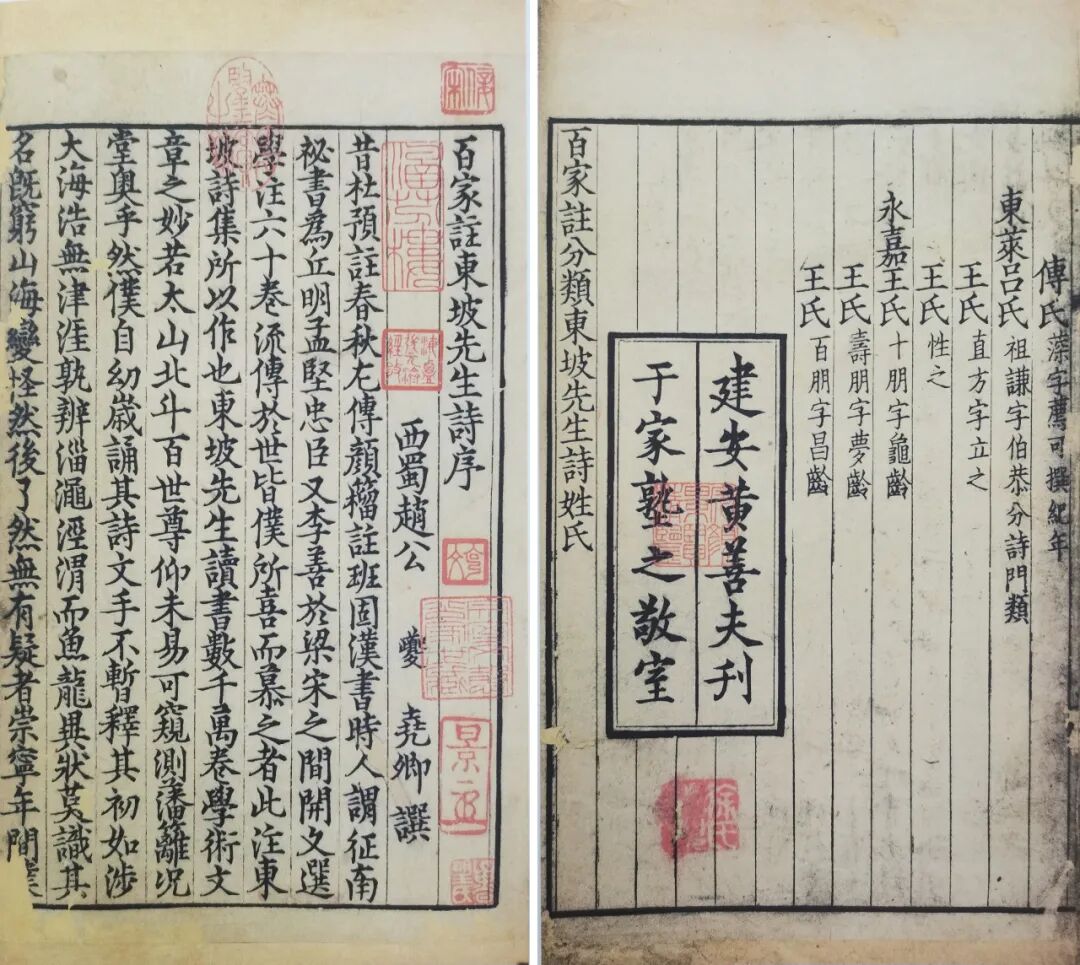 百家註東坡先生詩序
西蜀趙公 夔 堯卿 譔
昔杜預註春秋左傳顔籕註班固漢書時人謂征南
祕書為丘明孟堅忠臣又李善於梁宋之間開文選
學注六十卷流傳於世皆僕所喜而慕之者此注東
坡詩集所以作也東坡先生讀書數千萬卷學術文
章之妙若太山北斗百世尊仰未易可窺測藩籬況
堂奧乎然僕自幼歲誦其詩文手不暫釋其初如涉
大海浩無津涯孰辨淄澠涇渭而魚龍異狀莫識其
名既窮山海變怪然後了然無有疑者崇寧年間
景
傅氏 藻字薦可撰紀年
東萊呂氏 祖謙字伯恭分詩門類
王氏 直方字立之
王氏 性之
永嘉王氏 十朋字龜齡
王氏 壽朋字夢齡
王氏 百朋字昌齡
建安黃善夫刊
于家塾之敬室
百家註分類東坡先生詩姓氏
徐氏